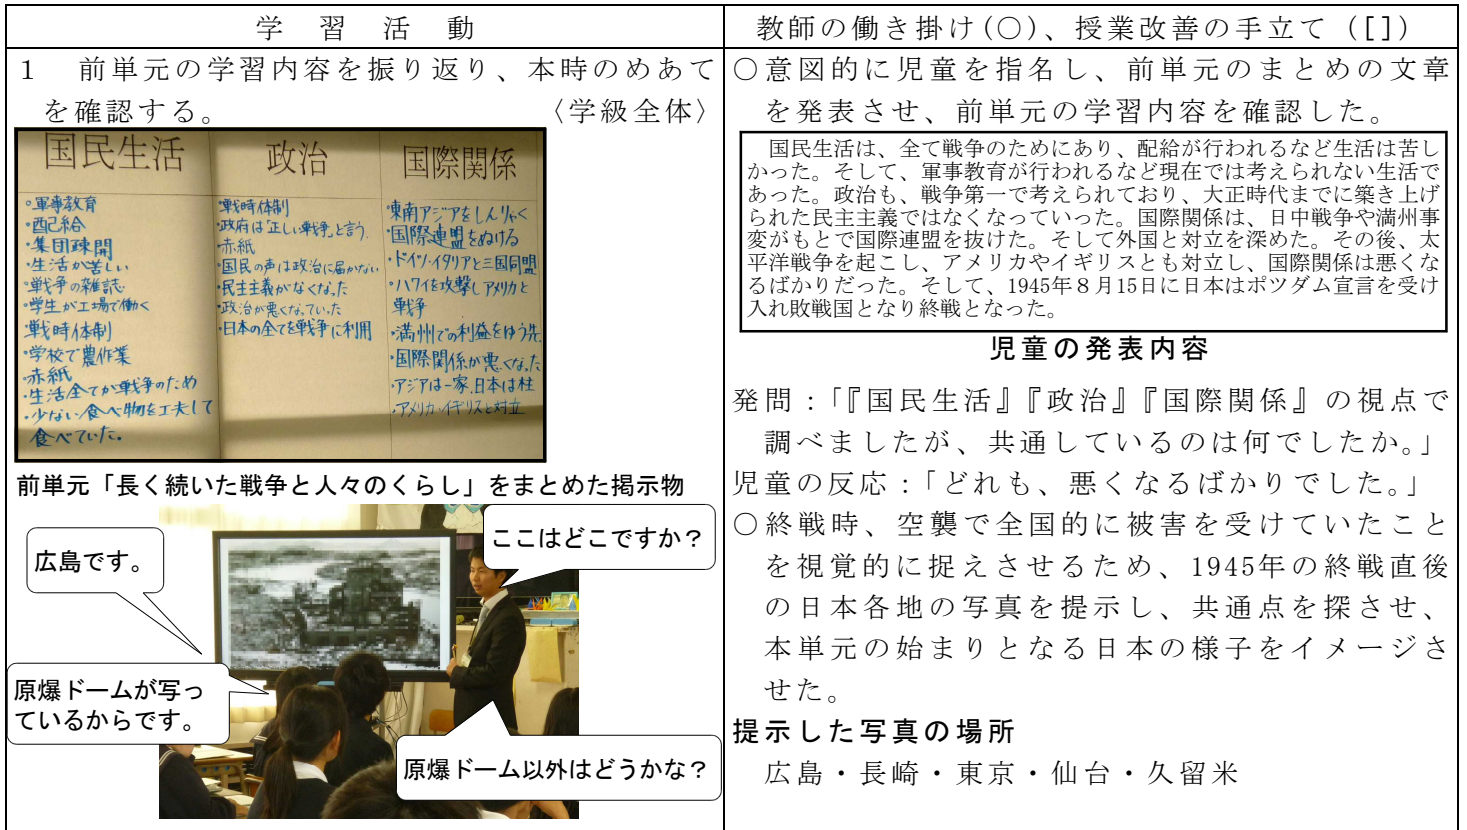 学習活動
教師の働き掛け(○)、授業改善の手立て([])
1　前単元の学習内容を振り返り、本時のめあて
を確認する。　〈学級全体〉
国民生活
・軍事教育
・配給
・集団疎開
・生活が苦しい
・戦争の雑誌
・学生が工場で働く
・戦時体制
・学校で農作業
・赤紙
・生活全てが戦争のため
・少ない食べ物を工夫して
食べていた。
政治
・戦時体制
・政府は「正しい戦争」と言う
・赤紙
・国民の声は政治に届かない
・民主主義がなくなった
・政治が悪くなっていった
・日本の全てを戦争に利用
国際関係
・東南アジアをしんりゃく
・国際連盟をぬける
・ドイツ・イタリアと三国同盟
・ハワイを攻撃しアメリカと
戦争
・満州での利益をゆう先
・国際関係が悪くなった
・アジアは一家、日本は柱
・アメリカ・イギリスと対立
前単元「長く続いた戦争と人々のくらし」をまとめた掲示物
ここはどこですか？
広島です。
原爆ドームが写っ
ているからです。
原爆ドーム以外はどうかな？
○意図的に児童を指名し、前単元のまとめの文章
を発表させ、前単元の学習内容を確認した。
国民生活は、全て戦争のためにあり、配給が行われるなど生活は苦し
かった。そして、軍事教育が行われるなど現在では考えられない生活で
あった。政治も、戦争第一で考えられており、大正時代までに築き上げ
られた民主主義ではなくなっていった。国際関係は、日中戦争や満州事
変がもとで国際連盟を抜けた。そして外国と対立を深めた。その後、太
平洋戦争を起こし、アメリカやイギリスとも対立し、国際関係は悪くな
るばかりだった。そして、1945年８月15日に日本はポツダム宣言を受け
入れ敗戦国となり終戦となった。
児童の発表内容
発問：「『国民生活』『政治』『国際関係』の視点で
調べましたが、共通しているのは何でしたか。」
児童の反応：「どれも、悪くなるばかりでした。」
○終戦時、空襲で全国的に被害を受けていたこと
を視覚的に捉えさせるため、1945年の終戦直後
の日本各地の写真を提示し、共通点を探させ、
本単元の始まりとなる日本の様子をイメージさ
せた。
提示した写真の場所
広島・長崎・東京・仙台・久留米